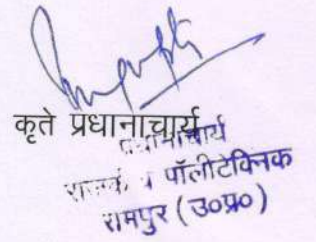 कृते प्रधानाचार्य
प्रधानाचार्य
राजकीय पॉलीटेक्निक
रामपुर (उ०प्र०)